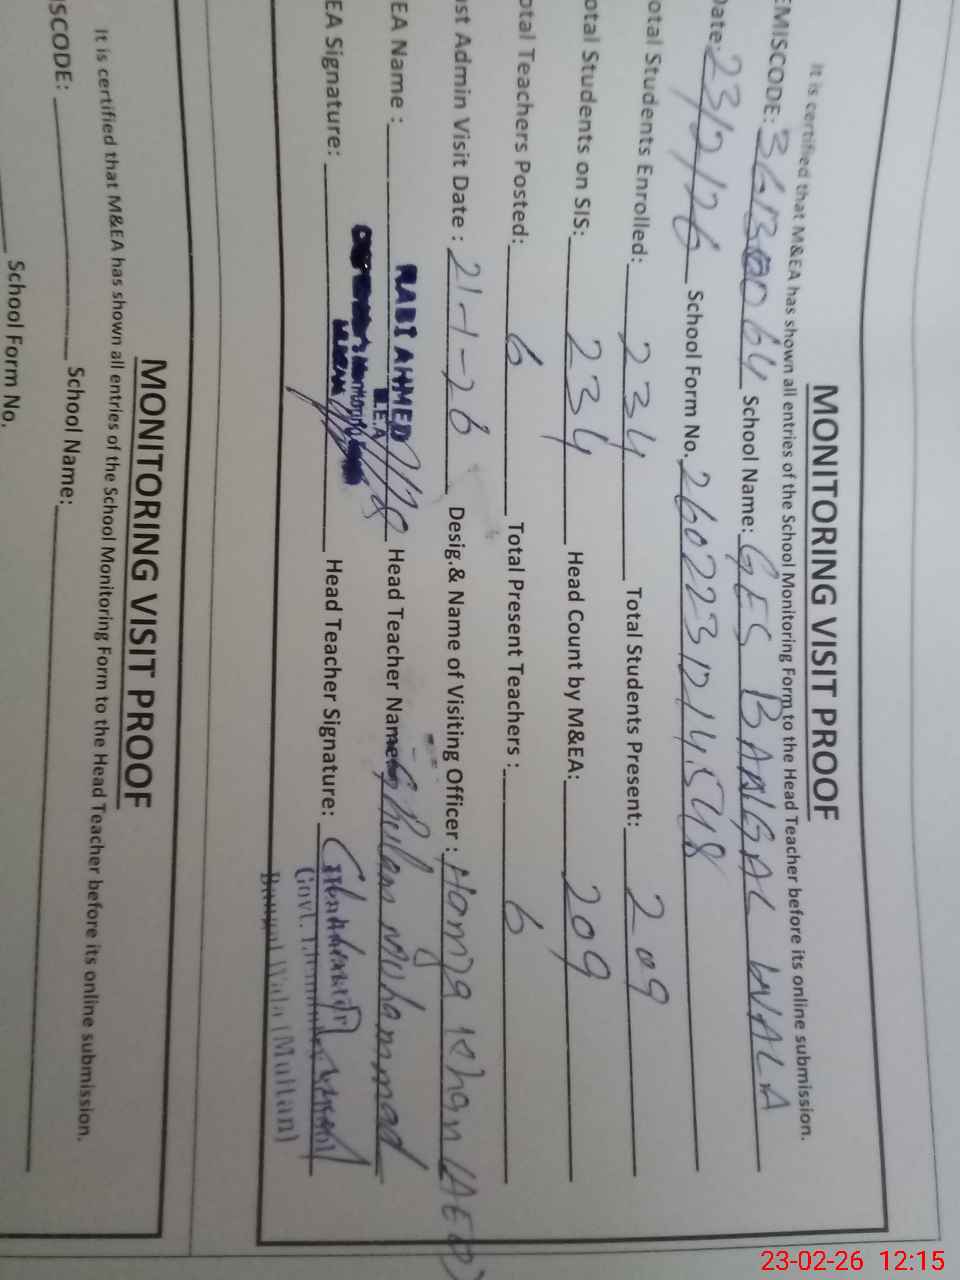 MONITORING VISIT PROOF
It is certified that M&EA has shown all entries of the School Monitoring Form to the Head Teacher before its online submission.
EMISCODE: School Name: GES BANGAL WALA
Date: 23/2/26 School Form No. 2602231214548
otal Students Enrolled: 234 Total Students Present: 209
otal Students on SIS: 234 Head Count by M&EA: 209
otal Teachers Posted: 6 Total Present Teachers : 6
ast Admin Visit Date : 21-1-26 Desig.& Name of Visiting Officer : Hamza Khan (AEO)
EA Name : RABI AHMED Head Teacher Name: Ghulam Muhammad
EA Signature: Head Teacher Signature:
Govt.
Bangal Wala (Multan)
MONITORING VISIT PROOF
It is certified that M&EA has shown all entries of the School Monitoring Form to the Head Teacher before its online submission.
ISCODE: School Name:
School Form No.
23-02-26 12:15